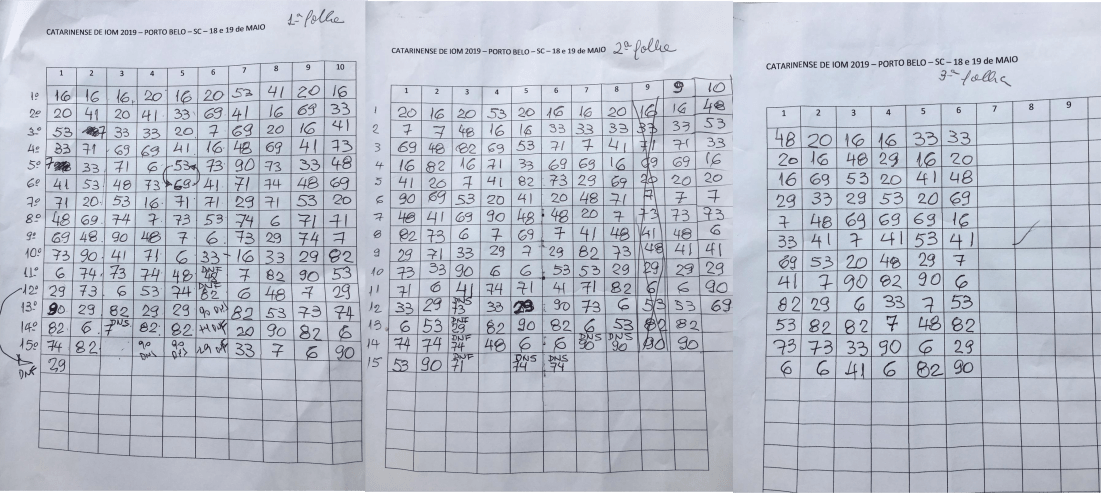 CATARINENSE DE IOM 2019 – PORTO BELO – SC – 18 e 19 de MAIO 1ª folha
1 2 3 4 5 6 7 8 9 10
1º 16 16 16 20 16 20 53 41 20 16
2º 20 41 20 41 33 69 41 16 69 33
3º 53 7 33 33 20 7 69 20 16 41
4º 33 71 69 69 41 16 48 69 41 73
5º 7 33 71 6 53 73 90 73 33 48
6º 41 53 48 73 69 41 71 74 48 69
7º 71 20 53 16 71 71 29 71 53 20
8º 48 69 74 7 73 53 74 6 71 71
9º 69 48 90 48 7 6 73 29 74 7
10º 73 90 41 71 6 33 16 33 29 82
11º 6 74 73 74 48 DNF 48 7 82 90 53
12º 29 73 6 53 74 DNF 82 6 48 7 29
13º 90 29 82 29 29 90 DNS 82 53 73 74
14º 82 6 DNS 7 82 82 20 90 82 6
15º 74 82 90 DNS 90 DNS 33 7 6 90
DNF 29
CATARINENSE DE IOM 2019 – PORTO BELO – SC – 18 e 19 de MAIO 2ª folha
1 2 3 4 5 6 7 8 9 9 10
1 20 16 20 53 20 16 16 20 16 16 48
2 7 7 48 16 16 33 33 33 33 33 53
3 69 48 82 69 53 71 7 41 71 71 33
4 16 82 16 71 33 69 69 16 69 69 16
5 41 20 7 41 82 73 29 69 20 20 20
6 90 69 53 20 41 20 48 71 7 7 7
7 48 41 69 90 48 48 20 7 73 73 73
8 82 73 6 7 69 7 41 48 41 48 6
9 29 71 33 29 7 29 82 73 48 41 41
10 73 33 90 6 6 53 53 29 29 29 29
11 71 6 41 74 71 41 71 82 6 6 90
12 33 29 DNS 73 33 29 90 73 6 53 53 69
13 6 53 DNF 29 82 90 82 6 53 82 82
14 74 74 DNF 74 48 6 6 DNS 90 DNS 90 90 90
15 53 90 DNF 71 DNS 74 DNS 74
CATARINENSE DE IOM 2019 – PORTO BELO – SC – 18 e 19 de MAIO
3ª folha
1 2 3 4 5 6 7 8 9
48 20 16 16 33 33
20 16 48 29 16 20
16 69 53 20 41 48
29 33 29 53 20 69
7 48 69 69 69 16
33 41 7 41 53 41
69 53 20 48 29 7
41 7 90 82 90 6
82 29 6 33 7 53
53 82 82 7 48 82
73 73 33 90 6 29
6 6 41 6 82 90